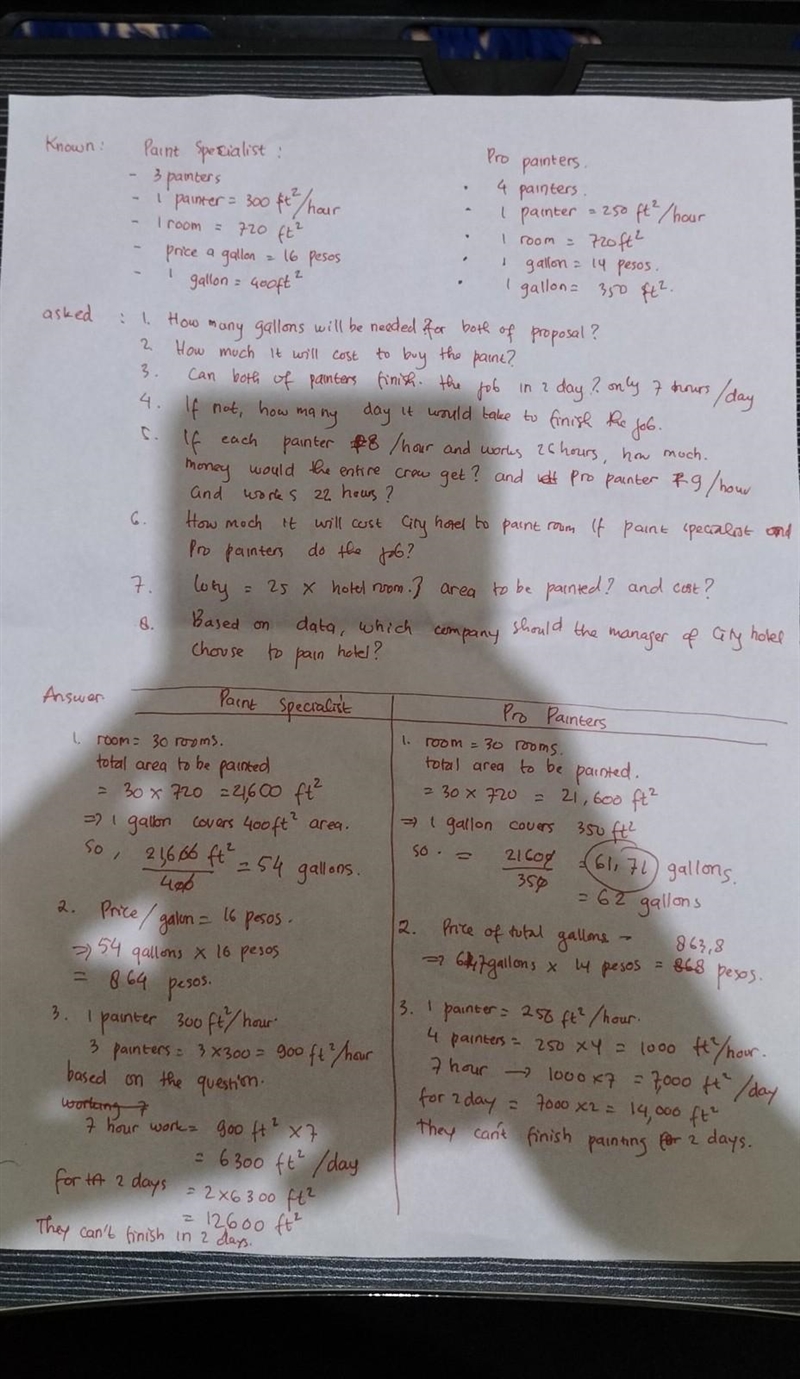 Known: Paint Specialist:
- 3 painters
- 1 painter = 300 ft²/hour
- 1 room = 720 ft²
- price a gallon = 16 pesos
- 1 gallon = 400ft²
Pro painters.
• 4 painters.
- 1 painter = 250 ft²/hour
• 1 room = 720ft²
• 1 gallon = 14 pesos.
• 1 gallon = 350 ft².
asked : 1. How many gallons will be needed for both of proposal?
2. How much it will cost to buy the paint?
3. Can both of painters finish. the job in 2 day? only 7 hours/day
4. If not, how many day it would take to finish the job.
5. If each painter ₱8 /hour and works 26 hours, how much.
money would the entire crew get? and Pro painter ₱9/hour
and works 22 hours?
6. How much it will cost City hotel to paint room if paint specialist and
Pro painters do the job?
7. = 25 x hotel room.} area to be painted? and cost?
8. Based on data, which company should the manager of City hotel
chouse to pain hotel?
Answer.
Paint Specialist
1. room = 30 rooms.
total area to be painted
= 30 x 720 = 21,600 ft²
⇒ 1 gallon covers 400ft² area.
so, 21,600 ft² / 400 = 54 gallons.
2. Price/galon = 16 pesos.
⇒ 54 gallons x 16 pesos
= 864 pesos.
3. 1 painter 300 ft²/hour.
3 painters = 3 x 300 = 900 ft²/hour
based on the question.
working 7
7 hour work = 900 ft² x 7
= 6300 ft² /day
for 2 days = 2 x 6300 ft²
= 12600 ft²
They can't finish in 2 days.
Pro Painters
1. room = 30 rooms.
total area to be painted.
= 30 x 720 = 21,600 ft²
⇒ 1 gallon covers 350 ft²
so. = 21600 / 350 = 61,71 gallons.
= 62 gallons
2. Price of total gallons - 863,8
⇒ 61,7gallons x 14 pesos = 868 pesos.
3. 1 painter = 250 ft²/hour.
4 painters = 250 x 4 = 1000 ft²/hour.
7 hour → 1000 x 7 = 7,000 ft²/day
for 2 day = 7000 x 2 = 14,000 ft²
They can't finish painting for 2 days.